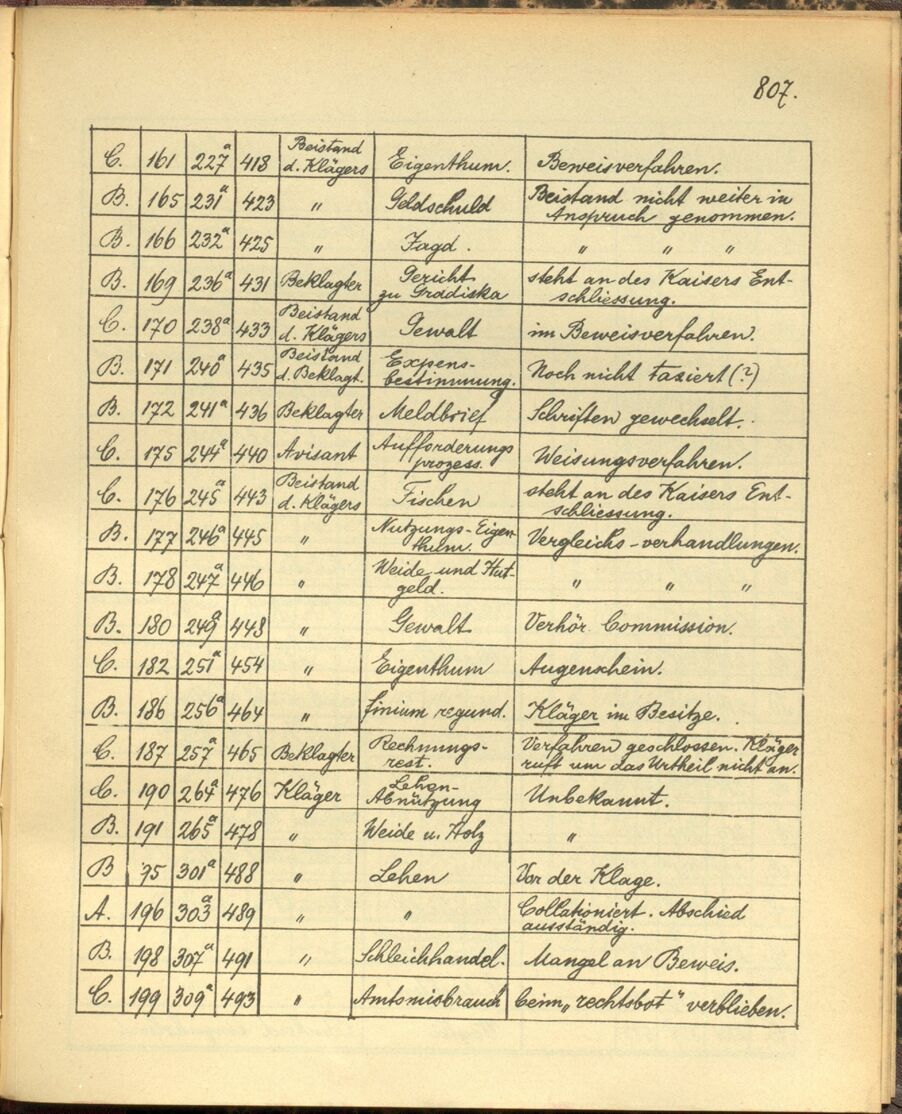 807.
C. 161 227ª 418 Beistand d. Klägers Eigenthum. Beweisverfahren.
B. 165 231ª 423 " Geldschuld Beistand nicht weiter in Anspruch genommen.
B. 166 232ª 425 " Jagd. " " "
B. 169 236ª 431 Beklagter Gericht zu Gradiska steht an des Kaisers Ent-schliessung.
C. 170 238ª 433 Beistand d. Klägers Gewalt im Beweisverfahren.
B. 171 240ª 435 Beistand d. Beklagt. Expens-bestimmung. Noch nicht taxiert (?)
B. 172 241ª 436 Beklagter Meldbrief Schriften gewechselt.
C. 175 244ª 440 Avisant Aufforderungs prozess. Weisungsverfahren.
C. 176 245ª 443 Beistand d. Klägers Fischen steht an des Kaisers Ent-schliessung.
B. 177 246ª 445 " Nutzungs-Eigen thum. Vergleichs-verhandlungen.
B. 178 247ª 446 " Weide und Hut-geld. " " "
B. 180 249ª 448 " Gewalt Verhör Commission.
C. 182 251ª 454 " Eigenthum Augenschein.
B. 186 256ª 464 " finium regund. Kläger im Besitze.
C. 187 257ª 465 Beklagter Rechnungs-rest. Verfahren geschlossen. Kläger ruft um das Urtheil nicht an.
C. 190 264ª 476 Kläger Lehen-Abnützung Unbekannt.
B. 191 265ª 478 " Weide u. Holz "
B 95 301ª 488 " Lehen Vor der Klage.
A. 196 303ª 489 " " Collationiert. Abschied ausständig.
B. 198 307ª 491 " Schleichhandel. Mangel an Beweis.
C. 199 309ª 493 " Amtsmisbrauch beim „rechtsbot" verblieben.